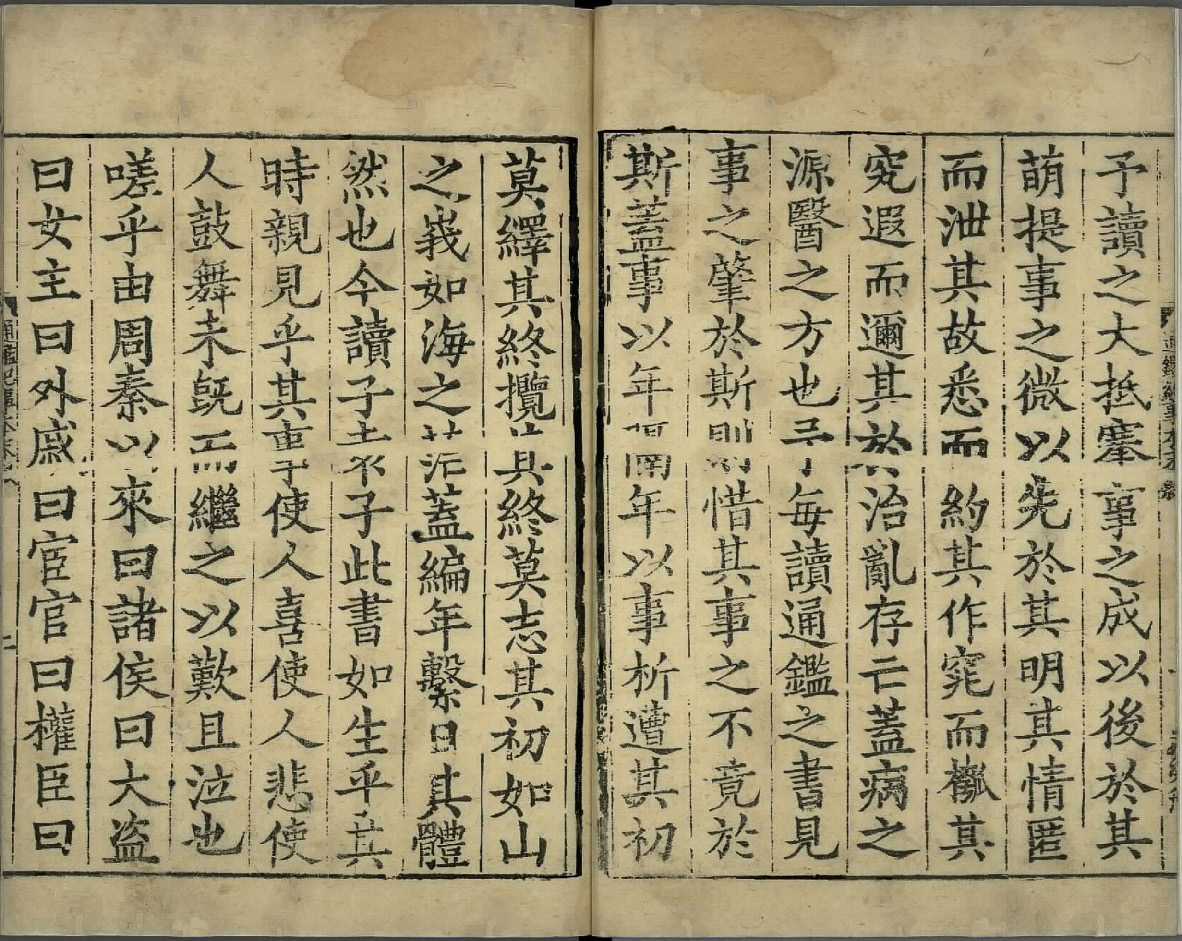 予讀之大抵搴事之成以後於其
萌提事之微以先於其明其情匿
而泄其故悉而約其作窕而槬其
究遐而邇其於治亂存亡蓋病之
源醫之方也予每讀通鑑之書見
事之肇於斯則惜其事之不竟於
斯蓋事以年隔年以事析遭其初
莫繹其終攬其終莫志其初如山
之峩如海之茫蓋編年繫日其體
然也今讀子袁子此書如生乎其
時親見乎其事使人喜使人悲使
人鼓舞未旣而繼之以歎且泣也
嗟乎由周秦以來曰諸侯曰大盗
曰女主曰外戚曰宦官曰權臣曰